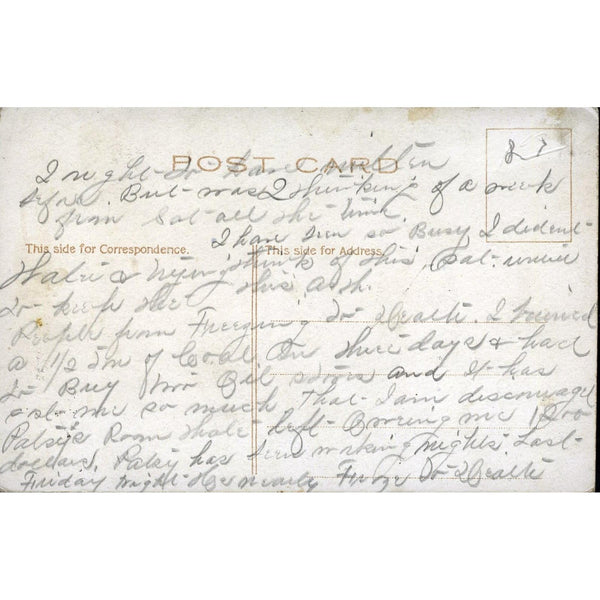 POST CARD
I might to have written
before. But was thinking of a week
from Sat all the time.
I have been so Busy I dident
This side for Correspondence.
This side for Address.
think of this Sat. until
this a.m.
to keep the
People from Freezing to Death. I burned
a 1 1/2 Ton of Coal in three days & had
to Buy two Oil stoves and it has
cost me so much that I am discouraged
Patsys Room Mate left Owing me 1200
dollars. Patsy has been working nights. Last
Friday Night He nearly Froze to Death